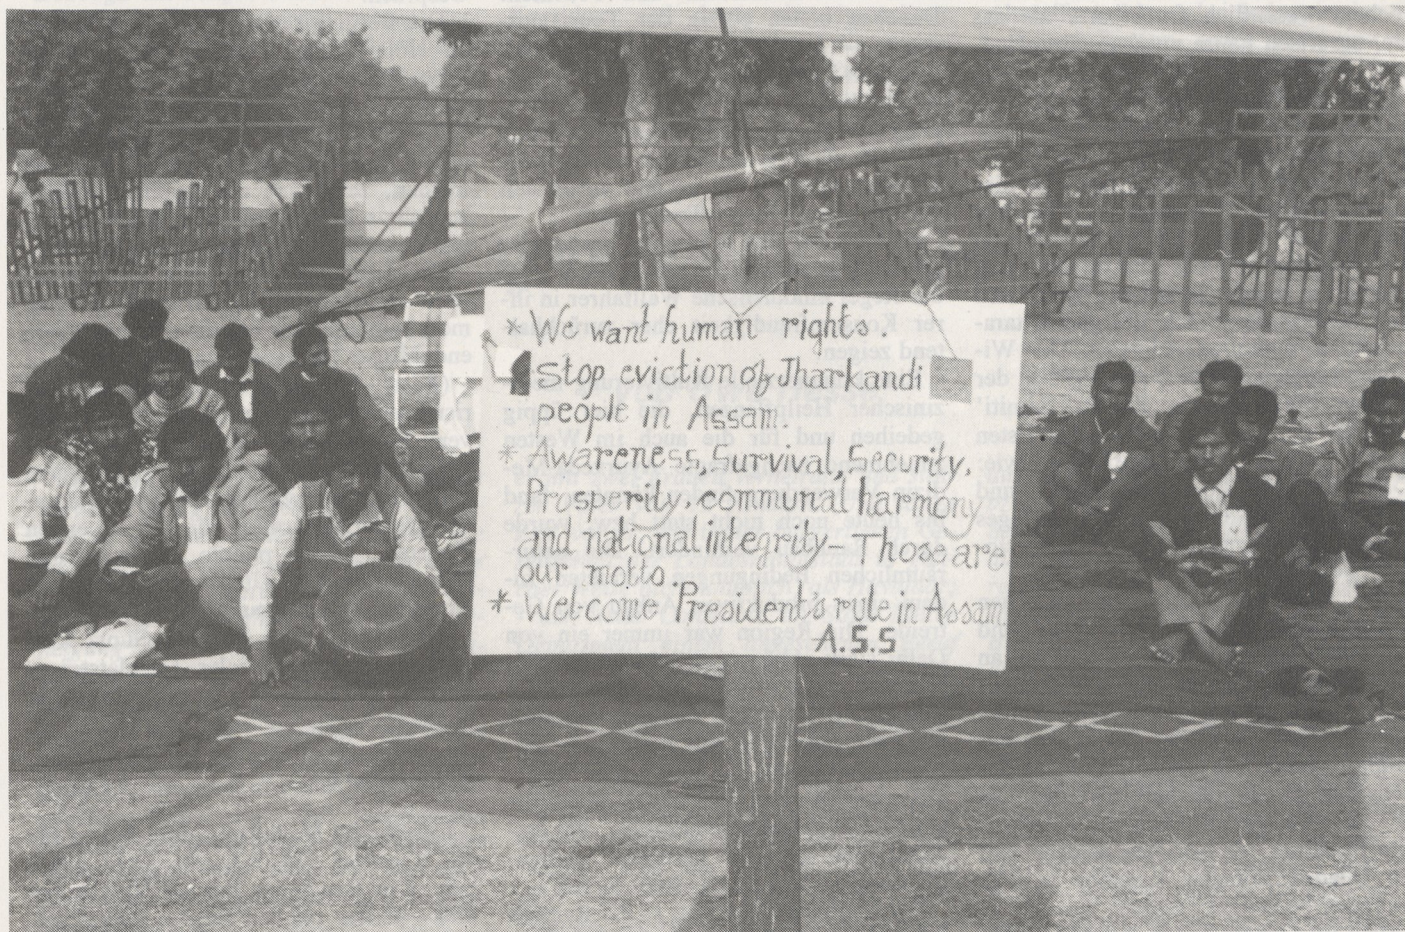 * We want human rights.
Stop eviction of Jharkandi
people in Assam.
* Awareness, Survival, Security,
Prosperity, communal harmony
and national integrity – Those are
our motto.
* Wel-come President's rule in Assam.
A.S.S